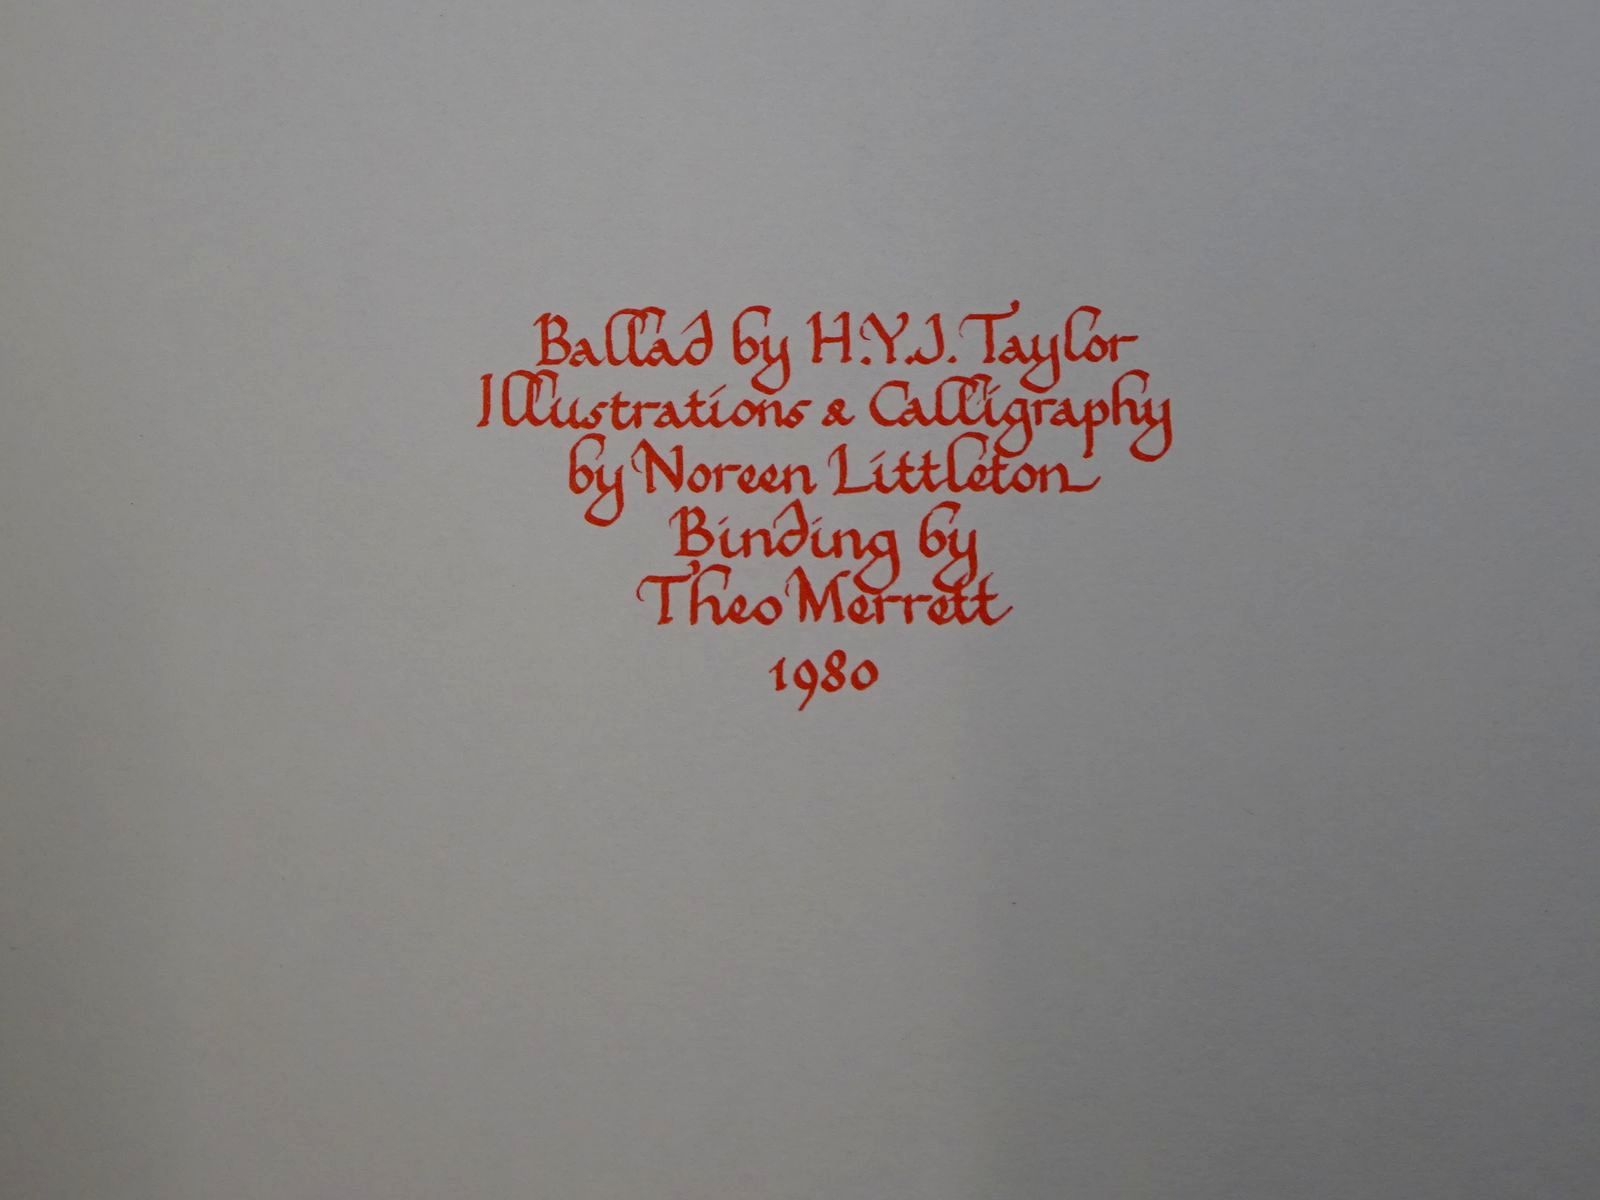 Ballad by H.Y.J. Taylor
Illustrations & Calligraphy
by Noreen Littleton
Binding by
Theo Merrett
1980